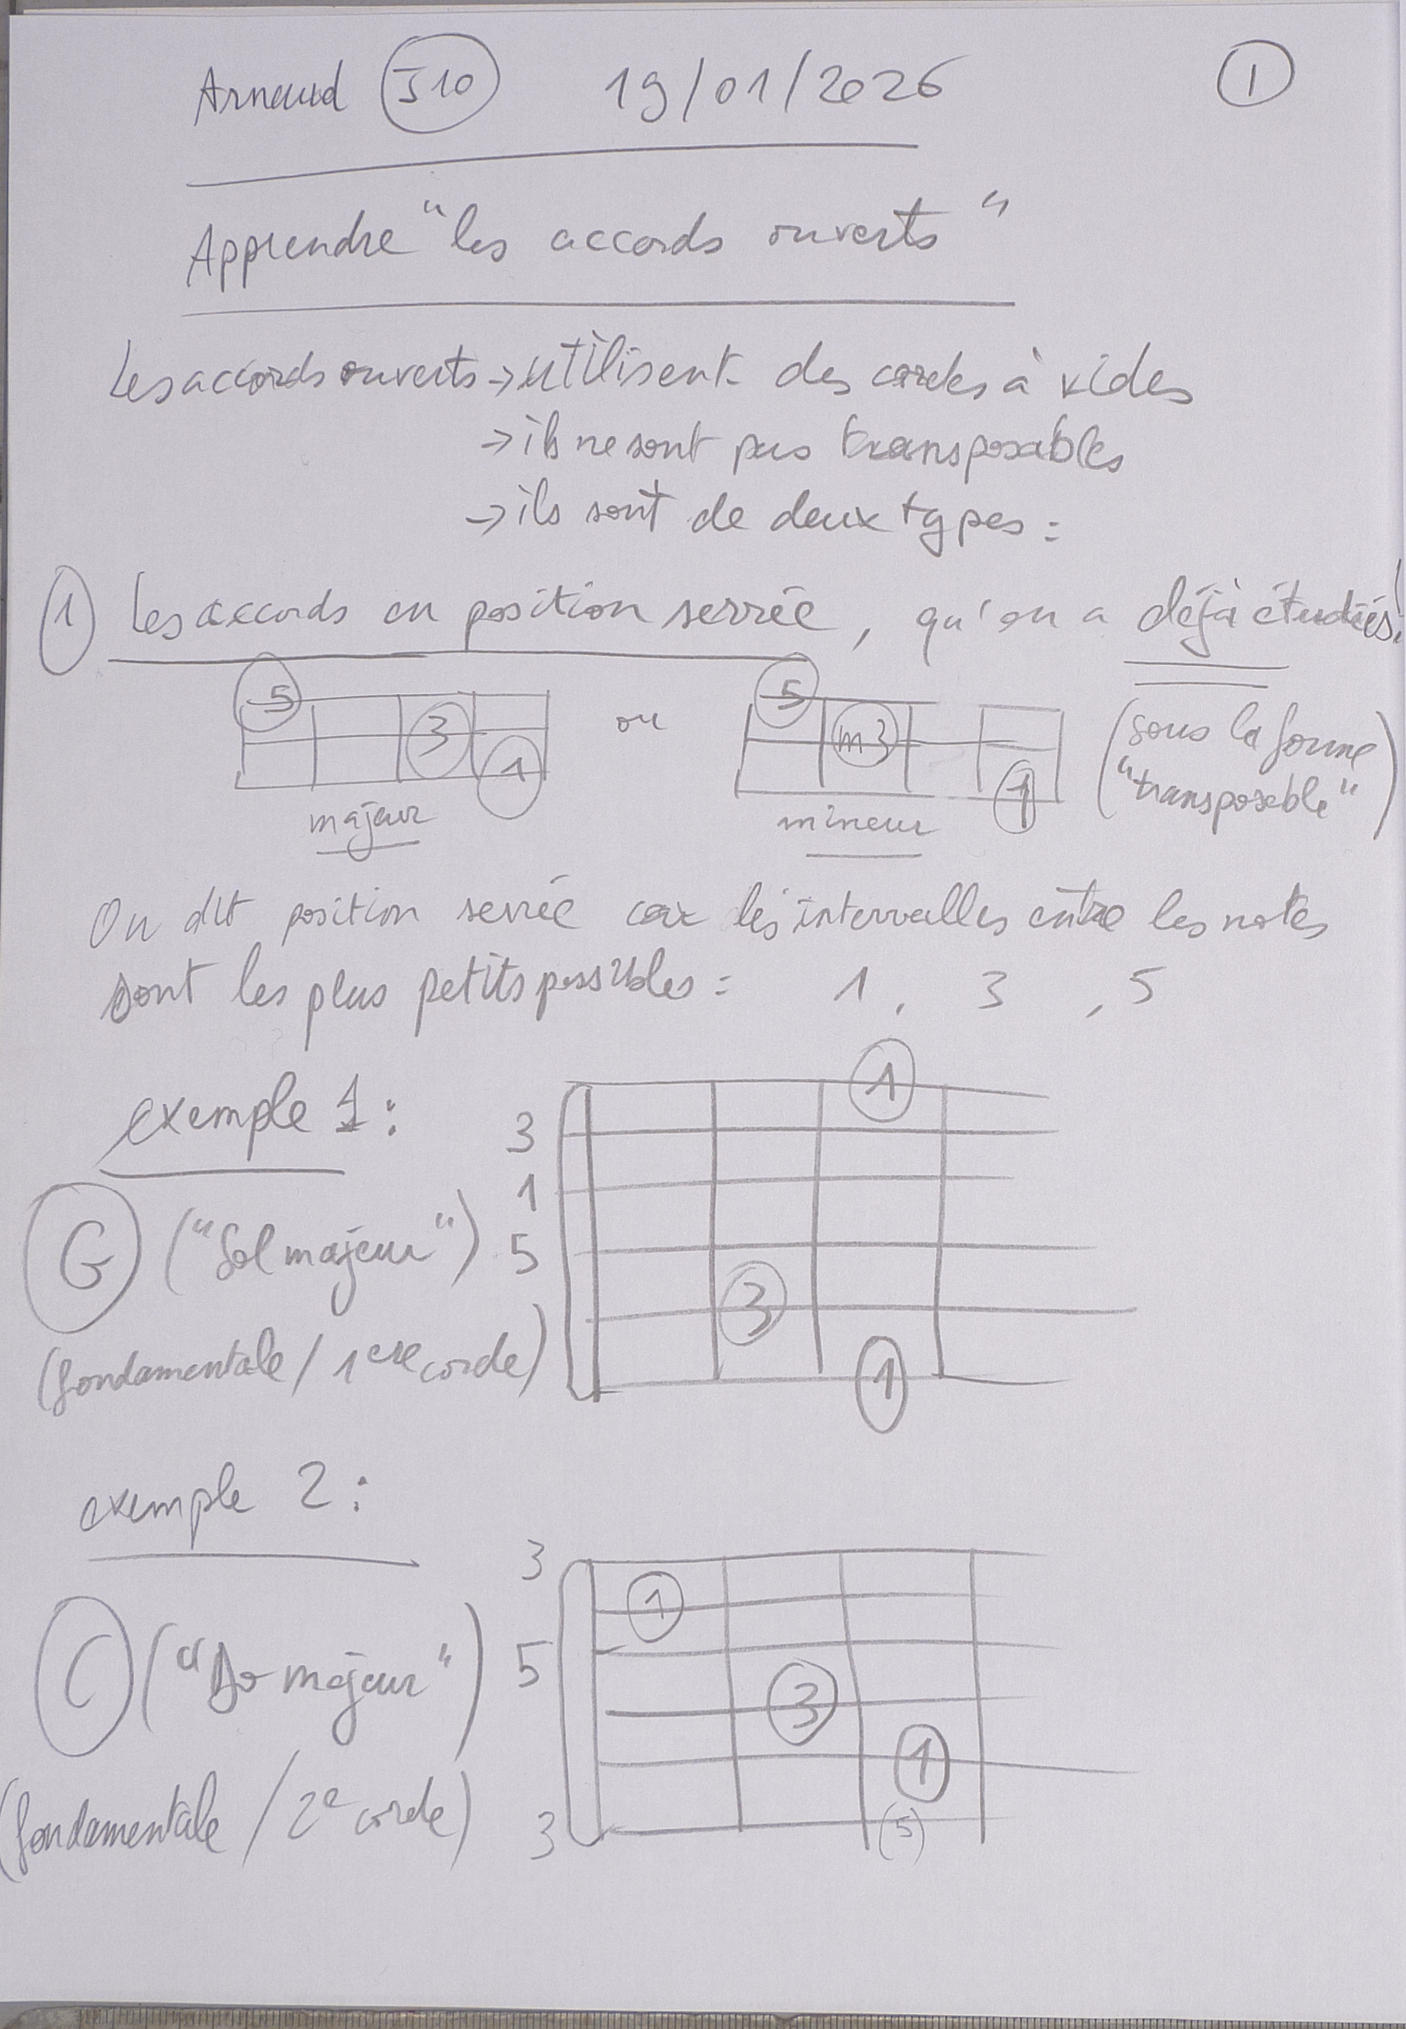 Arnaud J10 19/01/2026 1
Apprendre "les accords ouverts"
Les accords ouverts → utilisent des cordes à vides
→ ils ne sont pas transposables
→ ils sont de deux types :
1 Les accords en position serrée, qu'on a déjà étudiés !
5 3 1 ou 5 m3 1 (sous la forme
"transposable")
majeur mineur
On dit position serrée car les intervalles entre les notes
sont les plus petits possibles : 1, 3, 5
exemple 1 :
1
3
1
G ("Sol majeur") 5
3
(fondamentale / 1ere corde) 1
exemple 2 :
3
1
C ("Do majeur") 5
3
1
(fondamentale / 2e corde) 3 (5)